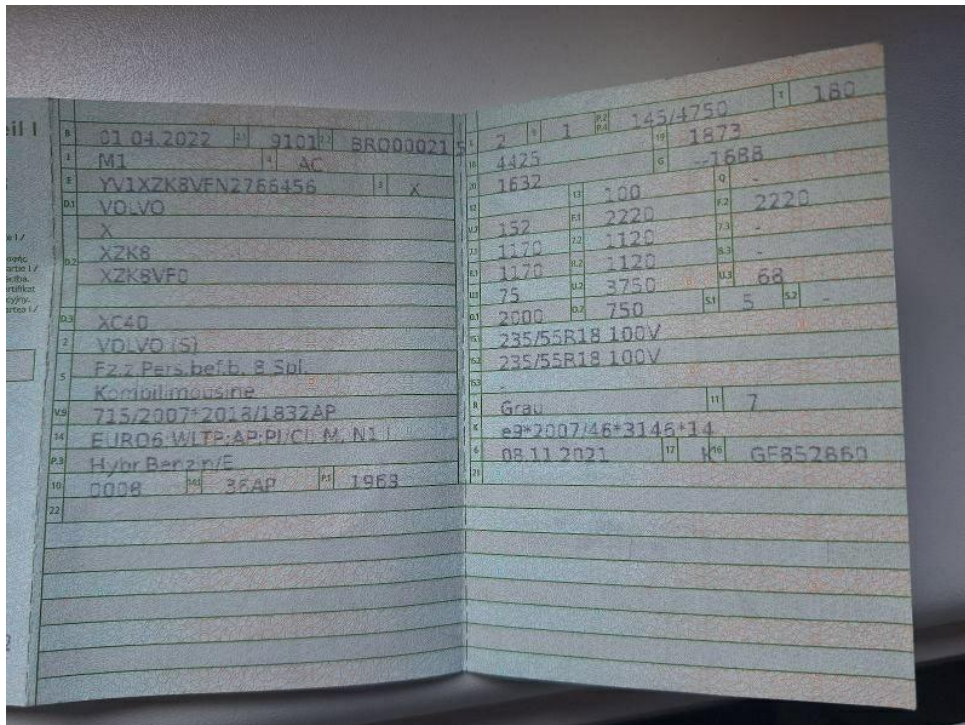 eil I
B 01.04.2022 2.1 9101 2.2 BRO00021 5
J M1 4 AC
E YV1XZK8VFN2766456 3 X
D.1 VOLVO
X
D.2 XZK8
XZK8VF0
D.3 XC40
2 VOLVO (S)
5 Fz.z.Pers.bef.b. 8 Spl.
Kombilimousine
V.9 715/2007*2018/1832AP
14 EURO6 WLTP;AP;PI/CI M, N1 I
P.3 Hybr.Benzin/E
10 0008 14.1 36AP P.1 1969
22
2 9 1 P.2 P.4 145/4750 T 180
18 4425 19 1873
20 1632 G --1688
13 100 Q -
V.7 152 F.1 2220 F.2 2220
7.1 1170 7.2 1120 7.3 -
8.1 1170 8.2 1120 8.3 -
U.1 75 U.2 3750 U.3 68
O.1 2000 O.2 750 S.1 5 S.2 -
15.1 235/55R18 100V
15.2 235/55R18 100V
15.3 -
R Grau 11 7
K e9*2007/46*3146*14
6 08.11.2021 17 K 16 GF852860
21